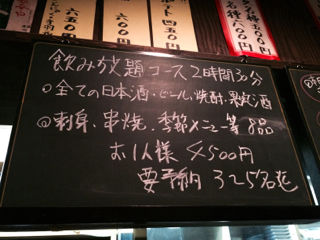 六〇〇円
四五〇円
名種 六〇〇円
飲み放題コース2時間30分
○全ての日本酒、ビール、焼酎、果実酒
◎刺身、串焼、季節メニュー等8品
お1人様 4500円
要予約 3〜25名迄